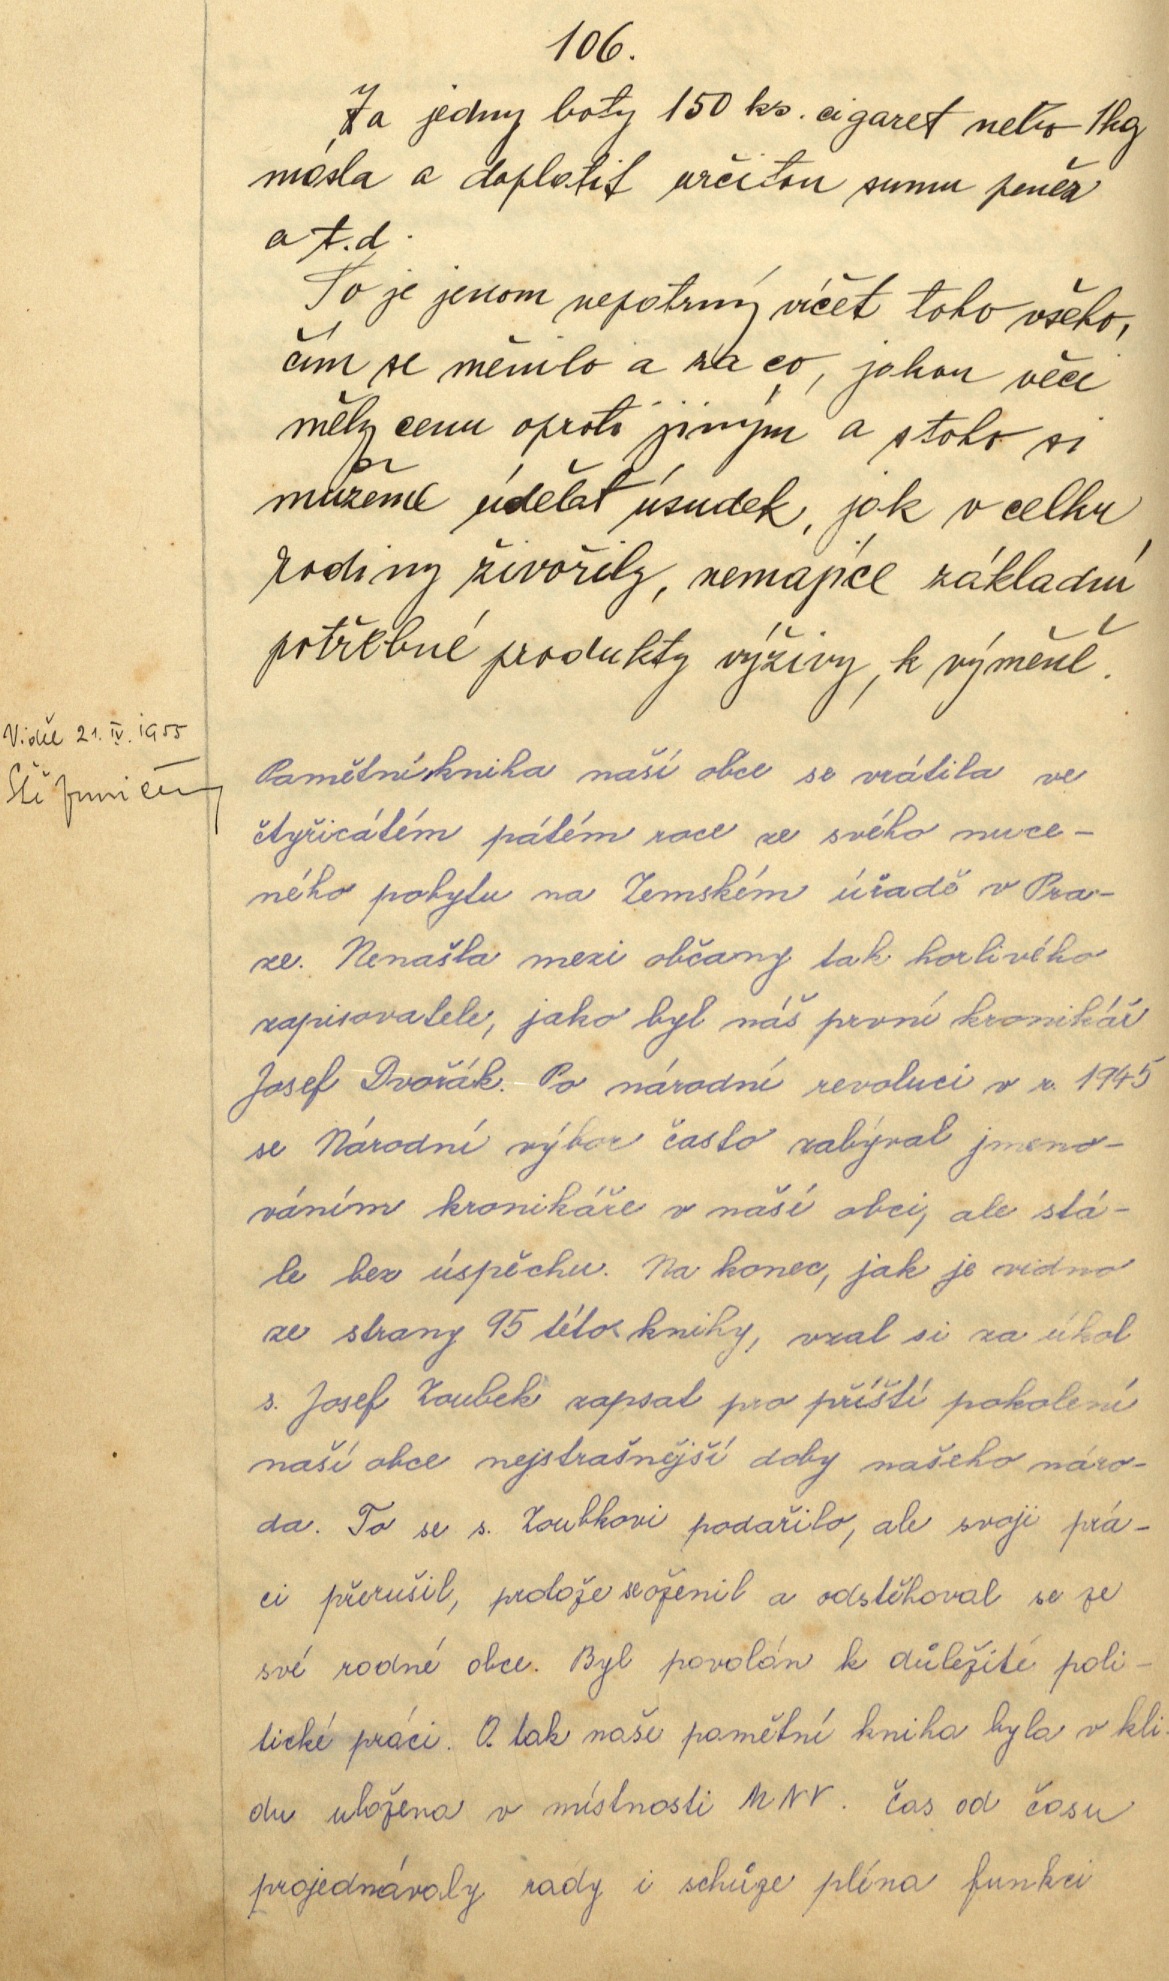 106.
Za jedny boty 150 ks. cigaret nebo 1kg
másla a doplatit určitou sumu peněz
a t.d.
To je jenom nepatrný víčet toho všeho,
čím se měnilo a za co, jakou věci
měly cenu oproti jiným a stoho si
můžeme údělat úsudek, jak v celku
rodiny živořily, nemajíce základní
potřebné produkty výživy, k výměně.
Viděl 21. IV. 1955
Pamětní kniha naší obce se vrátila ve
čtyřicátém pátém roce ze svého nuce-
ného pobytu na Zemském úřadě v Pra-
ze. Nenašla mezi občany tak horlivého
zapisovatele, jako byl náš první kronikář
Josef Dvořák. Po národní revoluci v r. 1945
se Národní výbor často zabýval jmeno-
váním kronikáře v naší obci, ale stá-
le bez úspěchu. Na konec, jak je vidno
ze strany 95 této knihy, vzal si za úkol
s. Josef Zoubek zapsat pro příští pokolení
naší obce nejstrašnější doby našeho náro-
da. To se s. Zoubkovi podařilo, ale svoji prá-
ci přerušil, protože se oženil a odstěhoval se ze
své rodné obce. Byl povolán k důležité poli-
tické práci. A tak naše pamětní kniha byla v kli-
du uložena v místnosti MNV. Čas od času
projednávaly rady i schůze pléna funkci